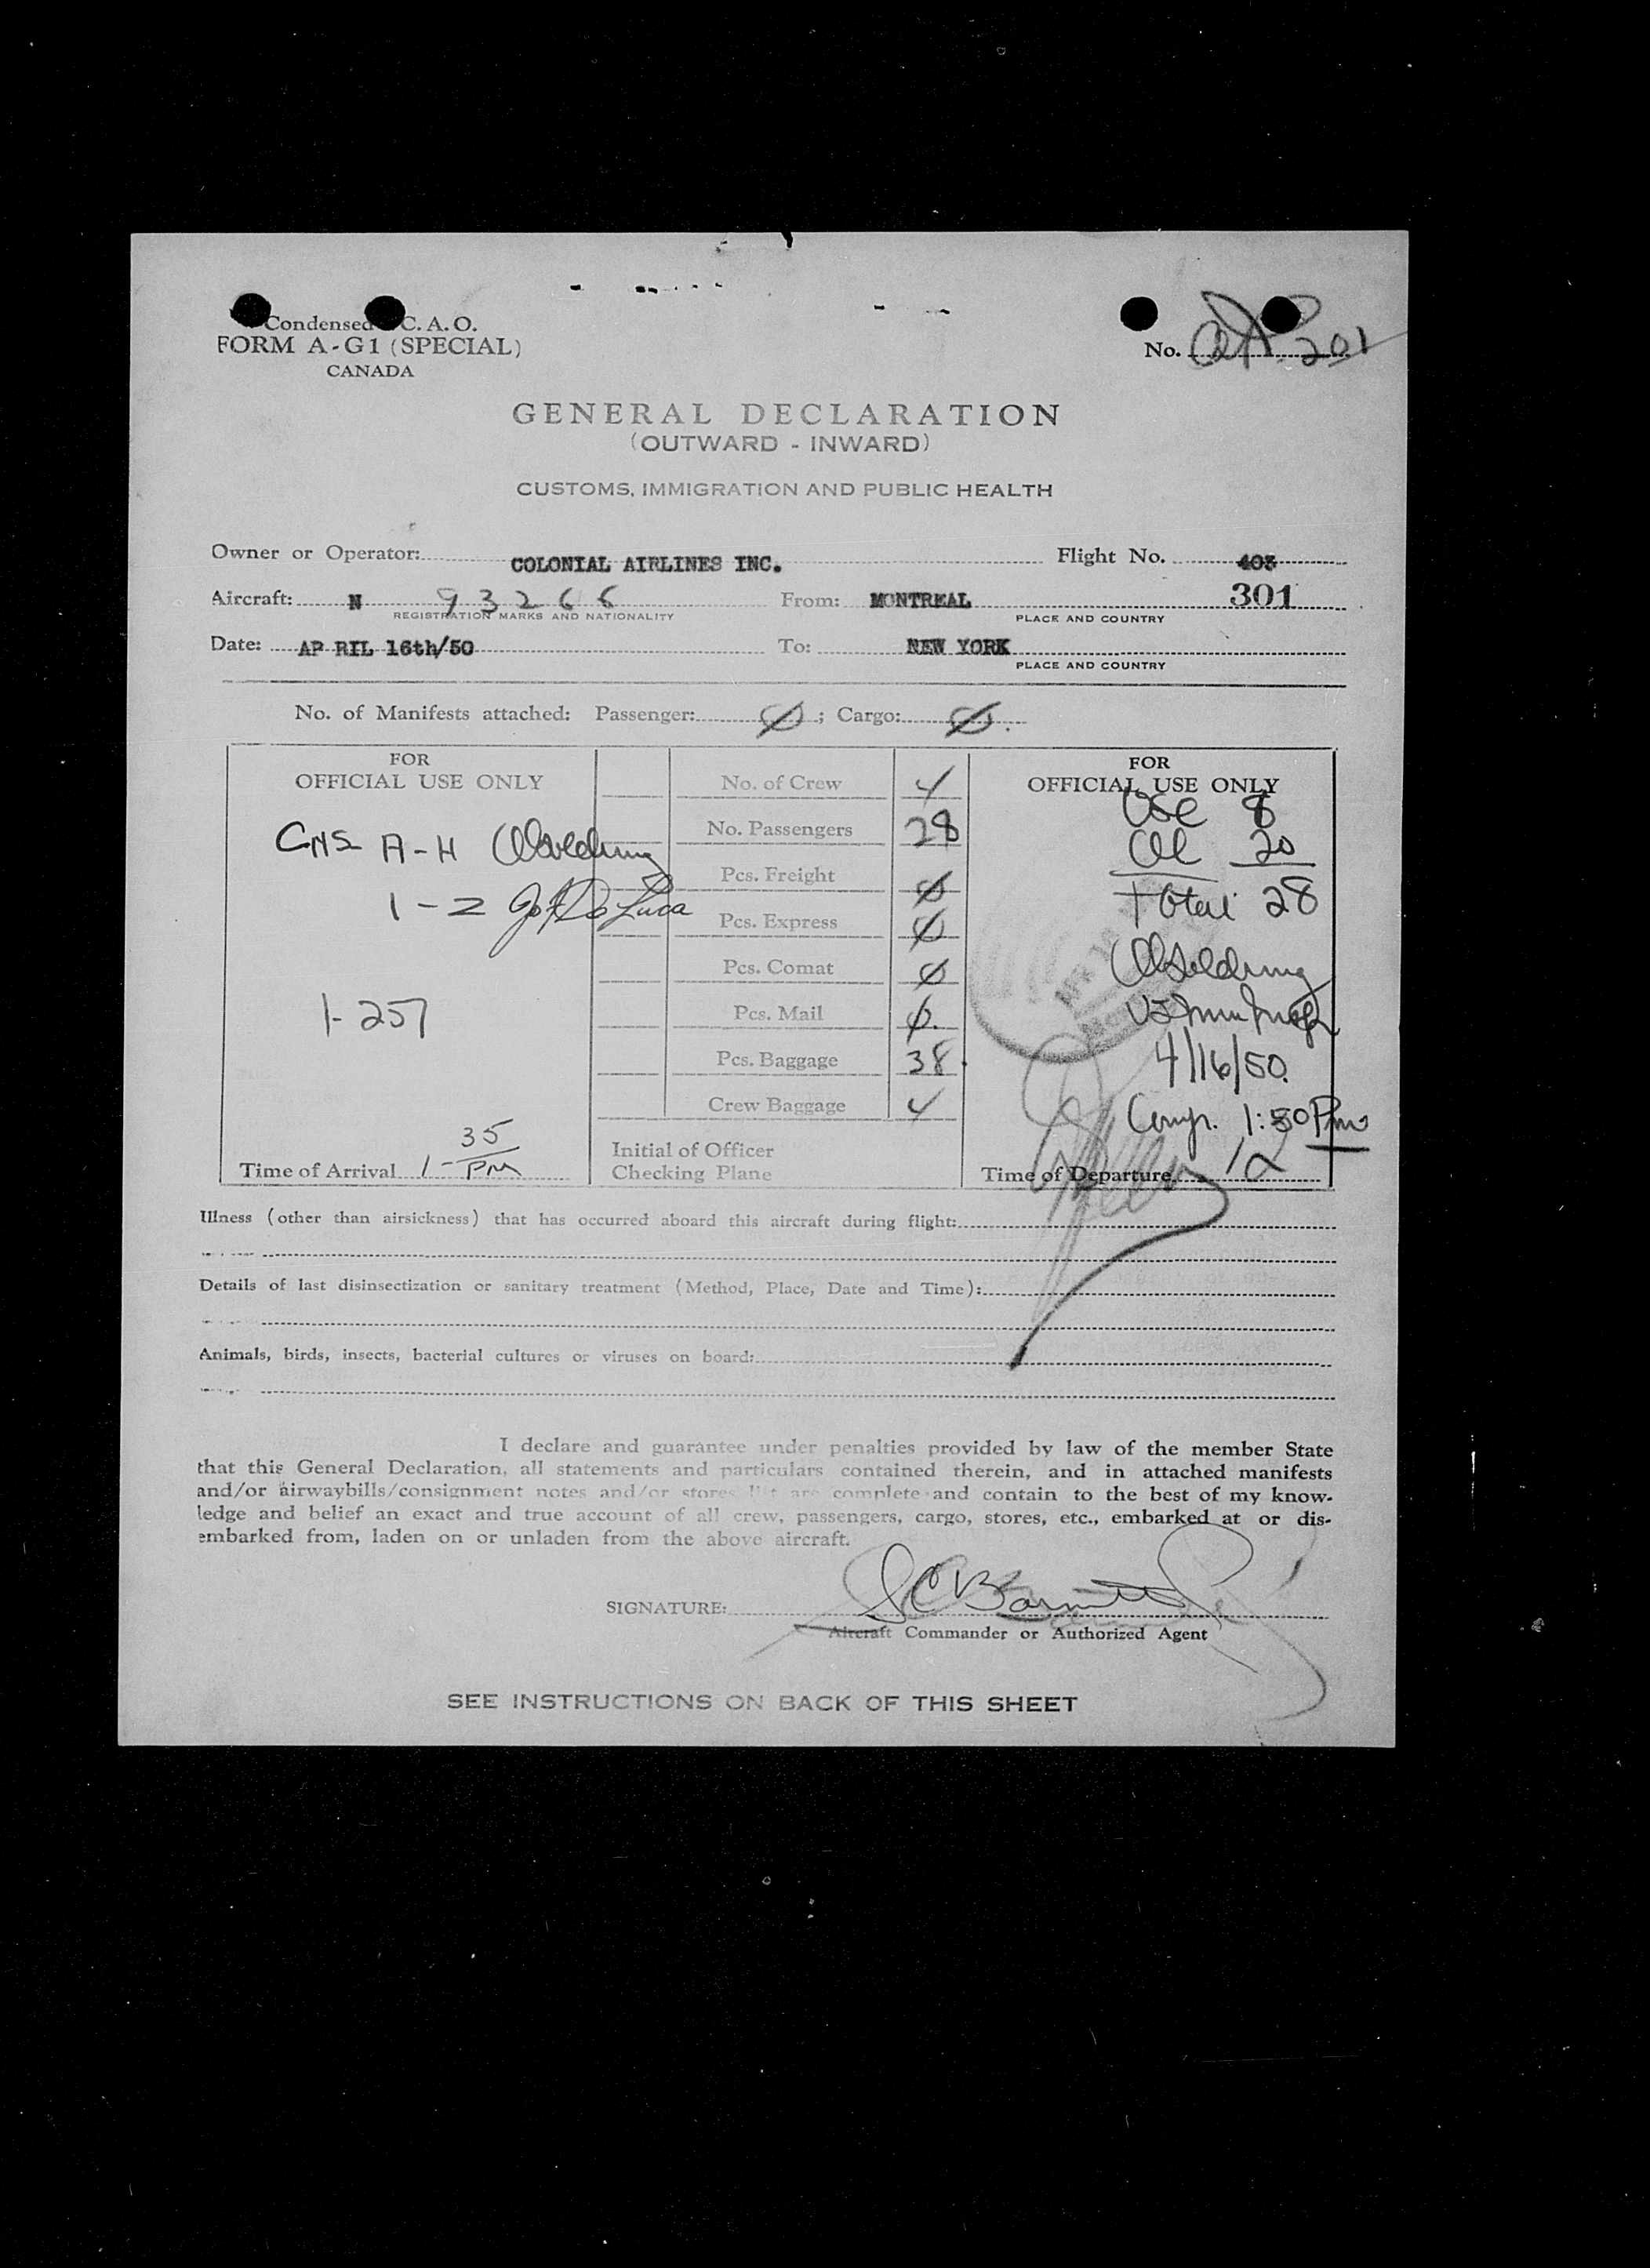 Condensed C. A. O.
FORM A-G1 (SPECIAL)
CANADA
No. 201
GENERAL DECLARATION
(OUTWARD - INWARD)
CUSTOMS, IMMIGRATION AND PUBLIC HEALTH
Owner or Operator: COLONIAL AIRLINES INC. Flight No. 403
Aircraft: N 93266 From: MONTREAL 301
REGISTRATION MARKS AND NATIONALITY PLACE AND COUNTRY
Date: AP RIL 16th/50 To: NEW YORK
PLACE AND COUNTRY
No. of Manifests attached: Passenger: Ø ; Cargo: Ø.
FOR
OFFICIAL USE ONLY
A-H
1-Z Jo De Luca
1-257
Time of Arrival 1-35 PM
No. of Crew 4
No. Passengers 28
Pcs. Freight Ø
Pcs. Express Ø
Pcs. Comat Ø
Pcs. Mail Ø.
Pcs. Baggage 38
Crew Baggage 4
Initial of Officer
Checking Plane
FOR
OFFICIAL USE ONLY
USC 8
20
Total 28
4/16/50.
Comp. 1:50 Pm
Time of Departure
Illness (other than airsickness) that has occurred aboard this aircraft during flight:
Details of last disinsectization or sanitary treatment (Method, Place, Date and Time):
Animals, birds, insects, bacterial cultures or viruses on board:
I declare and guarantee under penalties provided by law of the member State
that this General Declaration, all statements and particulars contained therein, and in attached manifests
and/or airwaybills/consignment notes and/or stores list are complete and contain to the best of my know-
ledge and belief an exact and true account of all crew, passengers, cargo, stores, etc., embarked at or dis-
embarked from, laden on or unladen from the above aircraft.
SIGNATURE:
Aircraft Commander or Authorized Agent
SEE INSTRUCTIONS ON BACK OF THIS SHEET